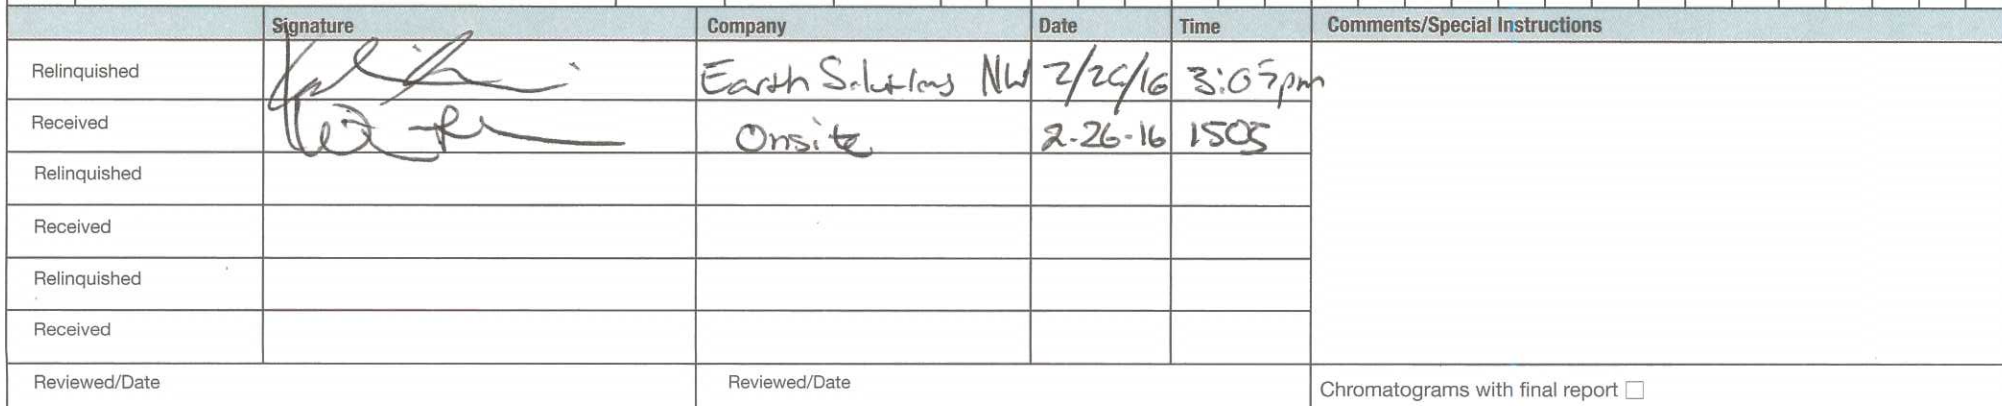 Signature Company Date Time Comments/Special Instructions
Relinquished Earth Solutions NW 2/26/16 3:05pm
Received Onsite 2-26-16 1505
Relinquished
Received
Relinquished
Received
Reviewed/Date Reviewed/Date Chromatograms with final report